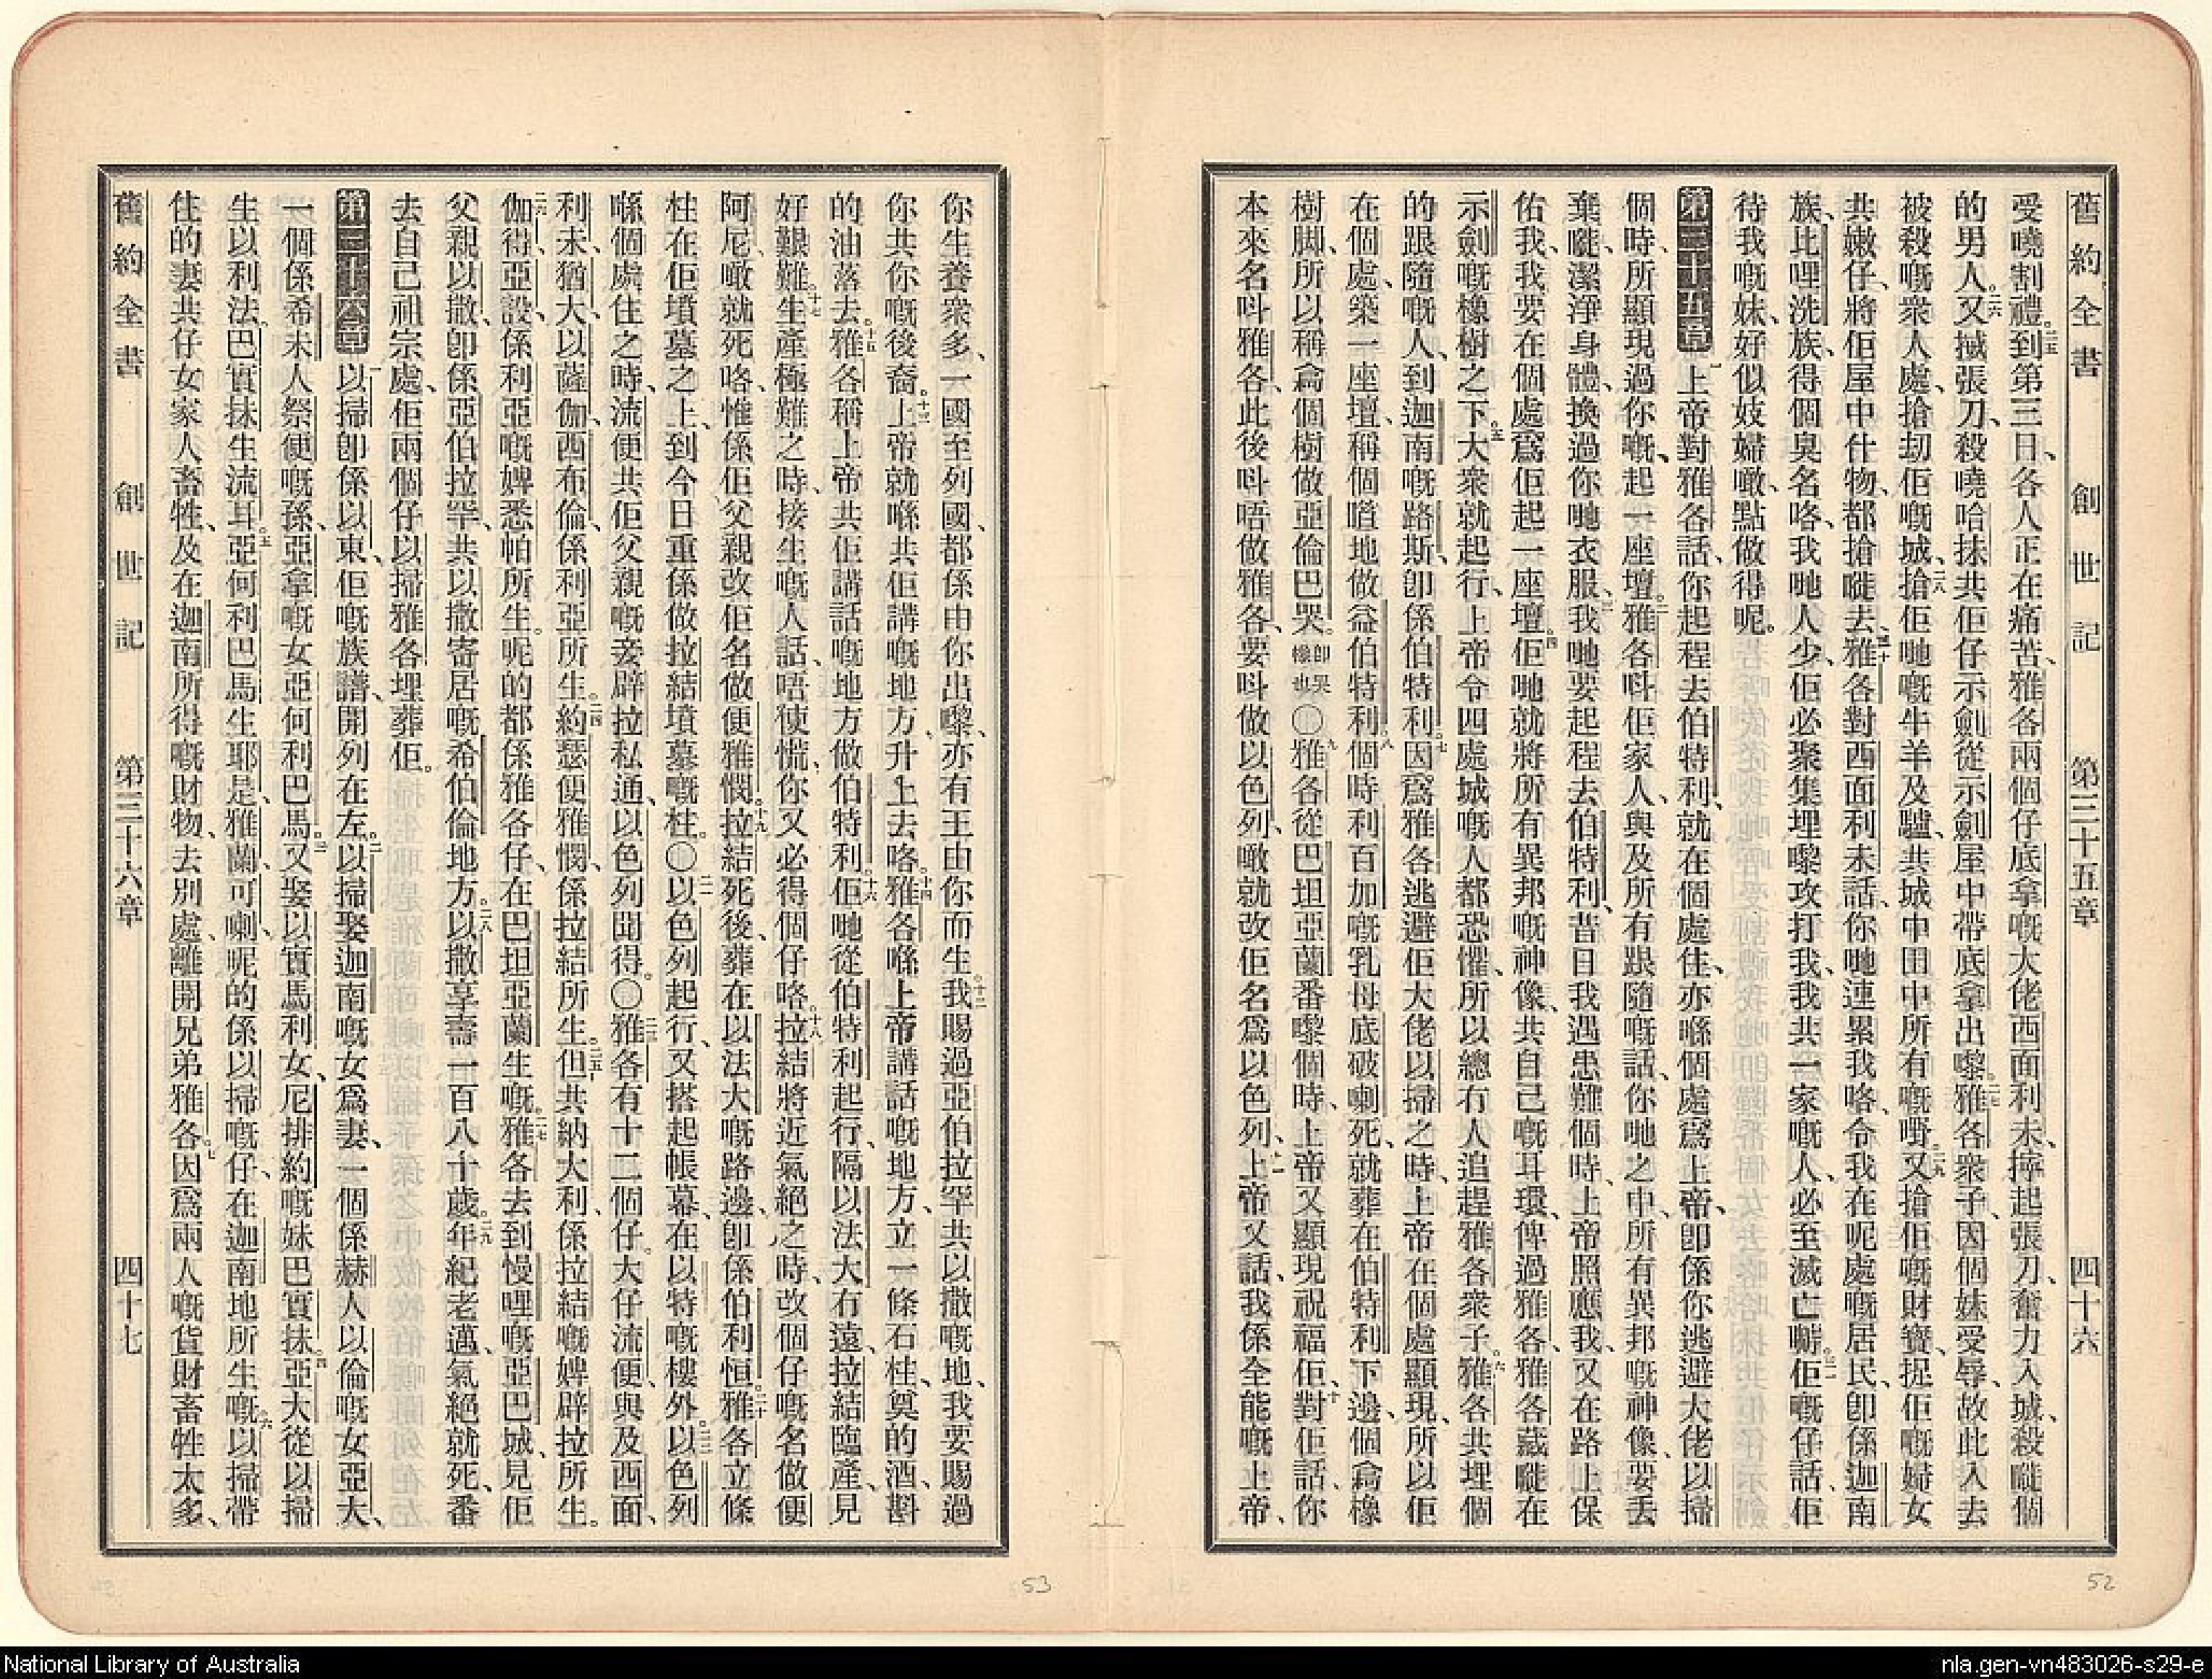 舊約全書 創世記 第三十五章 四十六
受嘵割禮。二五到第三日、各人正在痛苦、雅各兩個仔底拿嘅大佬西面利未、擰起張刀、奮力入城、殺嘥個
的男人。二六又搣張刀、殺嘵哈抹共佢仔示劍、從示劍屋中帶底拿出嚟。二七雅各衆子、因個妹受辱、故此入去
被殺嘅衆人處、搶刧佢嘅城、二八搶佢哋嘅牛羊及驢、共城中田中所有嘅嘢、二九又搶佢嘅財寶、捉佢嘅婦女
共嫩仔、將佢屋中什物、都搶嘥去、三十雅各對西面利未話、你哋連累我咯、令我在呢處嘅居民、卽係迦南
族、比哩洗族、得個臭名咯、我哋人少、佢必聚集埋嚟攻打我、我共一家嘅人、必至滅亡嚹。三一佢嘅仔話、佢
待我嘅妹、好似妓婦噉、點做得呢。
第三十五章 一上帝對雅各話、你起程去伯特利、就在個處住、亦喺個處爲上帝、卽係你逃避大佬以掃
個時、所顯現過你嘅、起一座壇。二雅各呌佢家人、與及所有跟隨嘅話、你哋之中、所有異邦嘅神像、要丢
棄嘥、潔淨身體、換過你哋衣服、三我哋要起程去伯特利、昔日我遇患難個時、上帝照應我、又在路上保
佑我、我要在個處爲佢起一座壇。四佢哋就將所有異邦嘅神像、共自己嘅耳環、俾過雅各、雅各藏嘥在
示劍嘅橡樹之下。五大衆就起行、上帝令四處城嘅人都恐懼、所以總冇人追趕雅各衆子。六雅各共埋個
的跟隨嘅人、到迦南嘅路斯、卽係伯特利。七因爲雅各逃避佢大佬以掃之時、上帝在個處顯現、所以佢
在個處、築一座壇、稱個噎地做益伯特利。八個時利百加嘅乳母底破喇死、就葬在伯特利下邊、個兪橡
樹脚、所以稱兪個樹做亞倫巴哭。卽哭橡也〇九雅各從巴坦亞蘭番嚟個時、上帝又顯現祝福佢、十對佢話、你
本來名呌雅各、此後呌唔做雅各、要呌做以色列、噉就改佢名爲以色列、十一上帝又話、我係全能嘅上帝、
你生養衆多、一國至列國、都係由你出嚟、亦有王由你而生。十二我賜過亞伯拉罕共以撒嘅地、我要賜過
你共你嘅後裔。十三上帝就喺共佢講嘅地方、升上去咯。十四雅各喺上帝講話嘅地方、立一條石柱、奠的酒、斟
的油落去。十五雅各稱上帝共佢講話嘅地方做伯特利。十六佢哋從伯特利起行、隔以法大冇遠、拉結臨產、見
好艱難。十七生產極難之時、接生嘅人話、唔使慌、你又必得個仔咯。十八拉結將近氣絕之時、改個仔嘅名做便
阿尼、噉就死咯、惟係佢父親改佢名做便雅憫。十九拉結死後、葬在以法大嘅路邊、卽係伯利恒。二十雅各立條
柱在佢墳墓之上、到今日重係做拉結墳墓嘅柱。〇二一以色列起行、又搭起帳幕、在以特嘅樓外。二二以色列
喺個處住之時、流便共佢父親嘅妾辟拉私通、以色列聞得。〇二三雅各有十二個仔。大仔流便、與及西面、
利未、猶大、以薩伽、西布倫、係利亞所生。二四約瑟便雅憫、係拉結所生。二五但共納大利、係拉結嘅婢辟拉所生。
二六伽得、亞設、係利亞嘅婢悉帕所生。呢的都係雅各仔、在巴坦亞蘭生嘅。二七雅各去到慢哩嘅亞巴城、見佢
父親以撒、卽係亞伯拉罕、共以撒寄居嘅希伯倫地方。二八以撒享壽一百八十歲。二九年紀老邁、氣絕就死、番
去自己祖宗處、佢兩個仔以掃雅各埋葬佢。
第三十六章 一以掃卽係以東、佢嘅族譜、開列在左。二以掃娶迦南嘅女爲妻、一個係赫人以倫嘅女亞大、
一個係希未人祭便嘅孫、亞拿嘅女亞何利巴馬。三又娶以實馬利女、尼排約嘅妹巴實抹。四亞大從以掃
生以利法。巴實抹生流耳。五亞何利巴馬生耶是、雅蘭、可喇、呢的係以掃嘅仔、在迦南地所生嘅。六以掃帶
住的妻共仔女家人畜牲、及在迦南所得嘅財物、去別處、離開兄弟雅各。七因爲兩人嘅貨財畜牲太多、
舊約全書 創世記 第三十六章 四十七
53
52
National Library of Australia
nla.gen-vn483026-s29-e